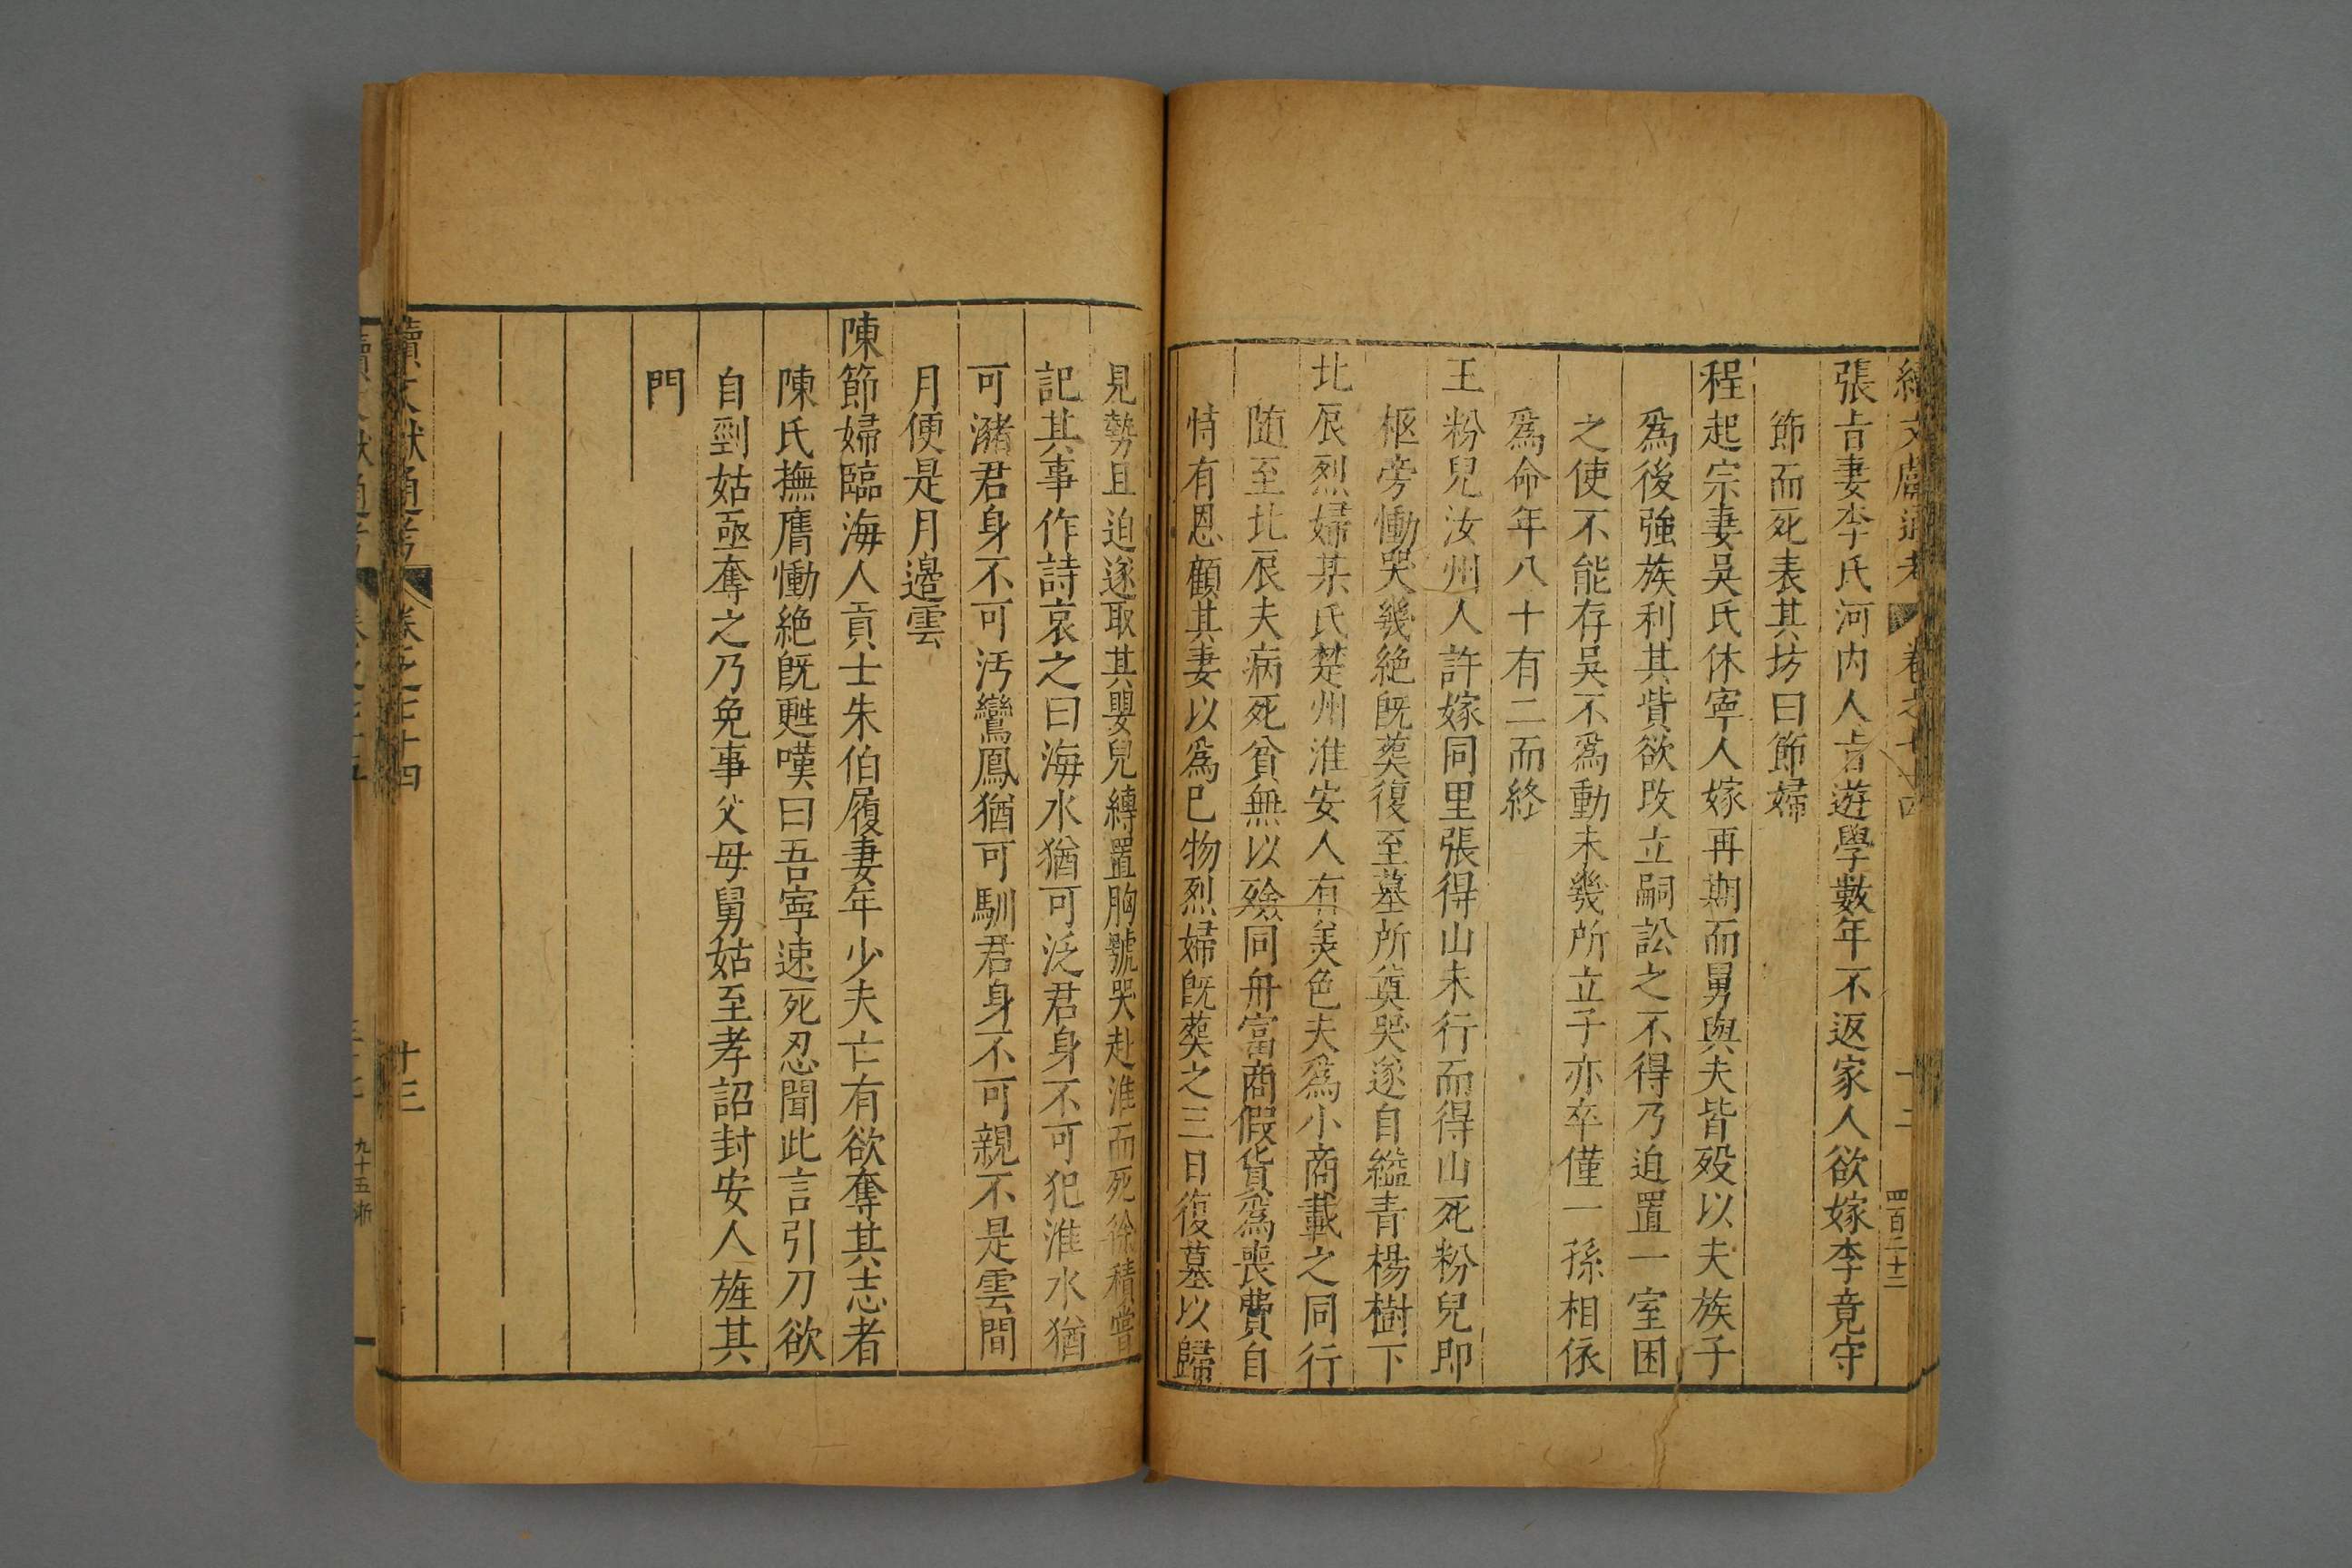 張吉妻李氏河内人吉遊學數年不返家人欲嫁李竟守
節而死表其坊曰節婦
程起宗妻吴氏休寧人嫁再期而舅與夫皆歿以夫族子
爲後強族利其貲欲改立嗣訟之不得乃迫置一室困
之使不能存吴不爲動未幾所立子亦卒僅一孫相依
爲命年八十有二而終
王粉兒汝州人許嫁同里張得山未行而得山死粉兒即
柩旁慟哭幾絶既葬復至墓所奠哭遂自縊青楊樹下
北辰烈婦某氏楚州淮安人有美色夫爲小商載之同行
随至北辰夫病死貧無以殮同舟富商假貨爲喪費自
恃有恩顧其妻以爲已物烈婦既葬之三日復墓以歸
見勢且迫遂取其嬰兒縛置胸號哭赴淮而死徐積嘗
記其事作詩哀之曰海水猶可泛君身不可犯淮水猶
可瀦君身不可汚鸞鳳猶可馴君身不可親不是雲間
月便是月邊雲
陳節婦臨海人貢士朱伯履妻年少夫亡有欲奪其志者
陳氏撫膺慟絶既甦嘆曰吾寧速死忍聞此言引刀欲
自剄姑亟奪之乃免事父母舅姑至孝詔封安人旌其
門
續文獻通考 卷之七十四 十三
九十五
四百二十二